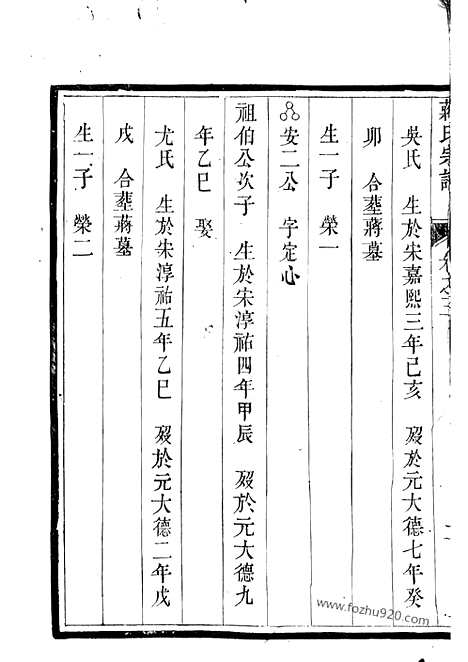 蔣氏宗譜
吳氏 生於宋嘉熙三年己亥 歿於元大德七年癸
卯 合塟蔣墓
生一子 榮一
安二公 字定心
祖伯公次子 生於宋淳祐四年甲辰 歿於元大德九
年乙巳 娶
尤氏 生於宋淳祐五年乙巳 歿於元大德二年戊
戌 合塟蔣墓
生一子 榮二
www.fozhu920.com